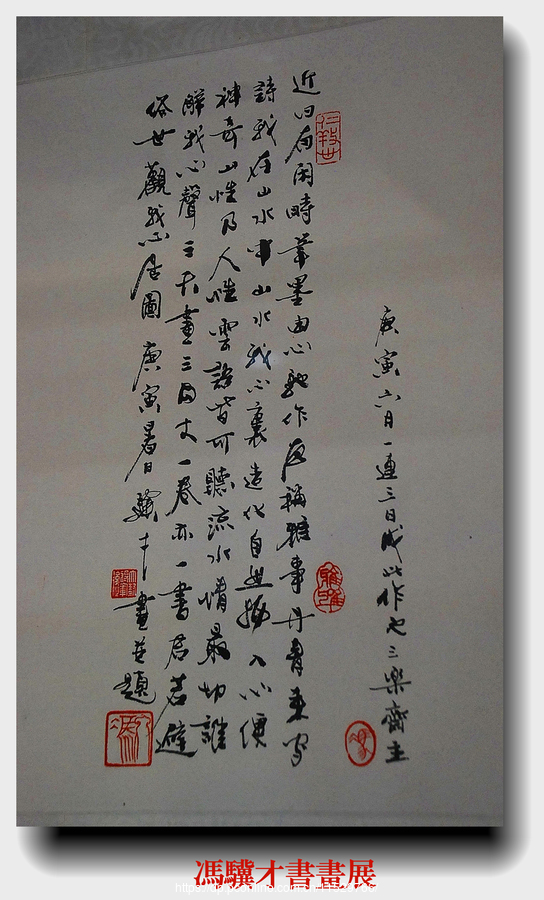 庚寅六月一連三日成此作也三樂齋主
近日有閑時筆墨由心馳作稱雅事丹青寫
詩我在山水中山水我心裏造化自入心便
神奇山性乃人性雲語皆可聽流水情最切誰
解我心聲三天畫三丈一卷亦一書君若避
俗世觀我心居圖庚寅暑日驥才畫並題
馮驥才書畫展